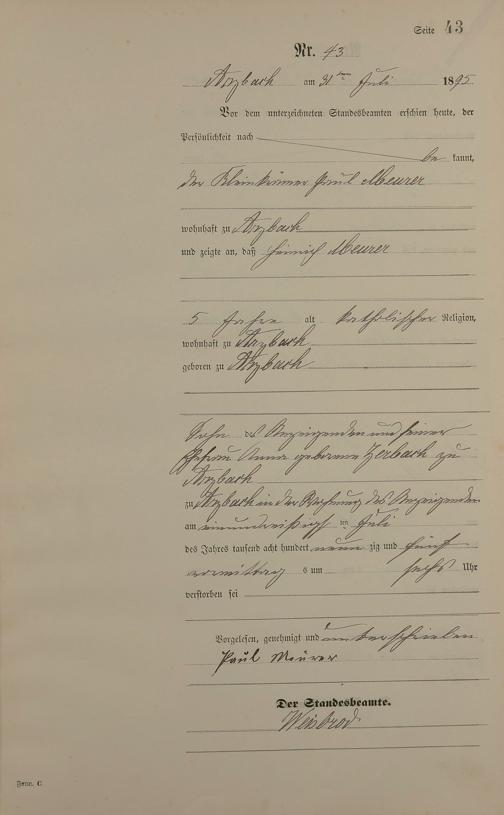 Seite 43
Nr. 43
Arzbach am 31ten Juli 1895
Vor dem unterzeichneten Standesbeamten erschien heute, der
Persönlichkeit nach
be kannt,
der Kleinkrämer Paul Meurer
wohnhaft zu Arzbach
und zeigte an, daß Heinrich Meurer
5 Jahre alt katholischer Religion,
wohnhaft zu Arzbach
geboren zu Arzbach
Sohn des Anzeigenden und seiner
Ehefrau Anna geborene Zerbach zu
Arzbach
zu Arzbach in der Wohnung des Anzeigenden
am einunddreißigsten Juli
des Jahres tausend acht hundert neun zig und fünf
vormittag s um sechs Uhr
verstorben sei
Vorgelesen, genehmigt und unterschrieben
Paul Meurer
Der Standesbeamte.
Weisbrod
Form. C